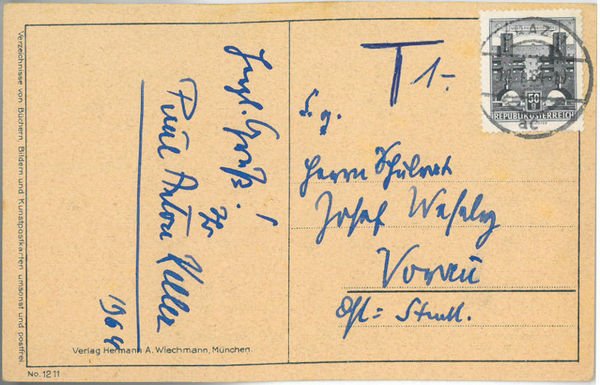 Verzeichnisse von Büchern, Bildern und Kunstpostkarten umsonst und postfrei
Herzl. Gruß!
Ihr
Paul Anton Keller
1964
Verlag Hermann A. Wiechmann, München
No. 1211
T 1.-
S. g.
Herrn Schulrat
Josef
Vorau
Ost-Steierm.
GRAZ
50
REPUBLIK ÖSTERREICH